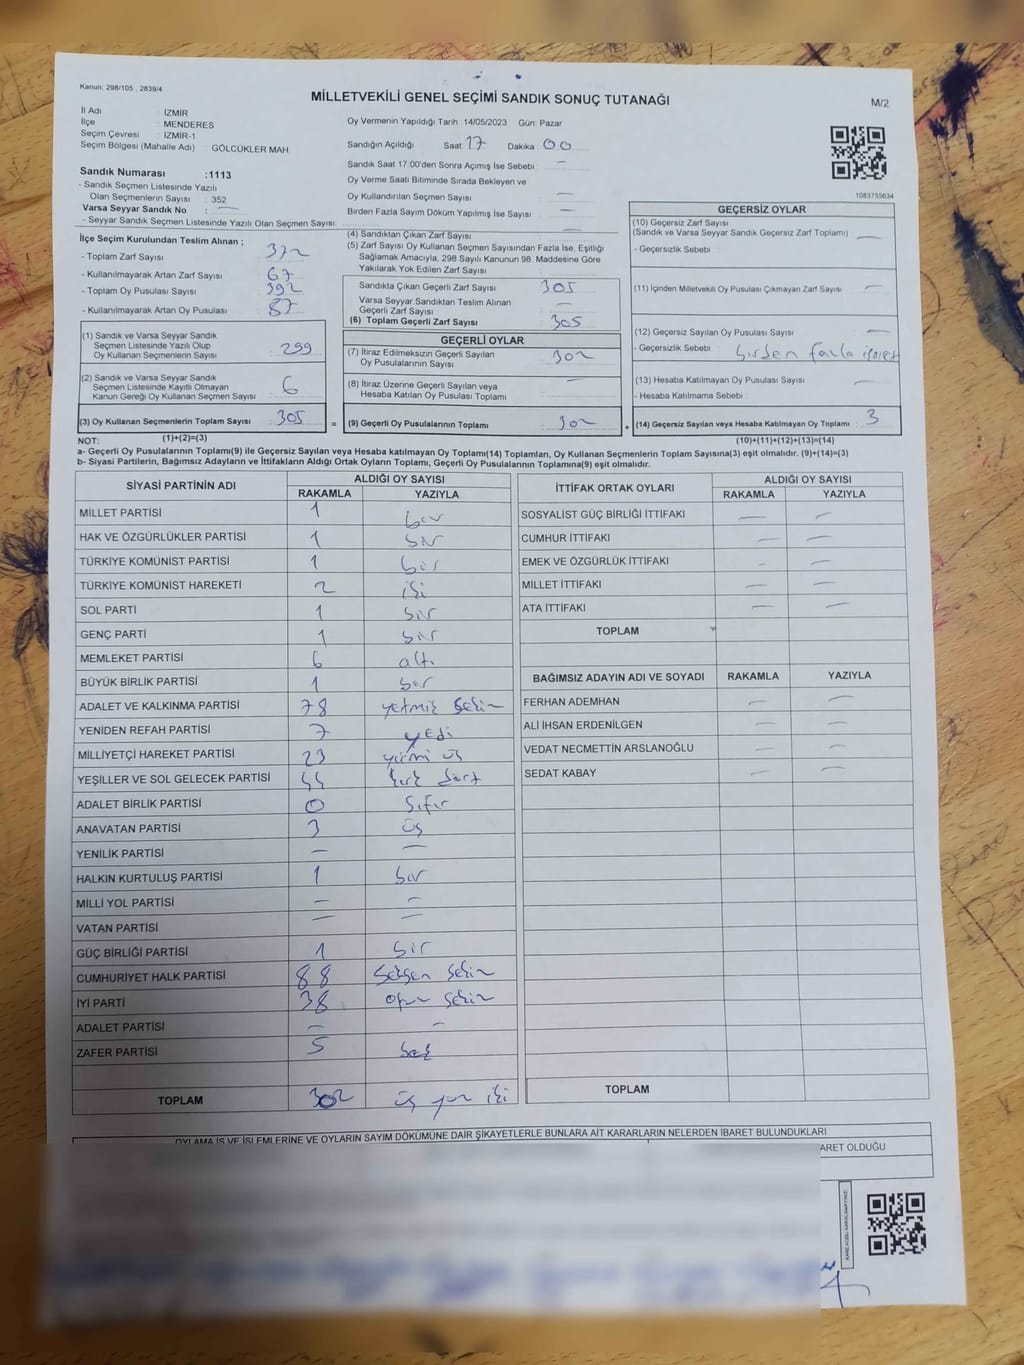 Kanun; 298/105 , 2839/4
MİLLETVEKİLİ GENEL SEÇİMİ SANDIK SONUÇ TUTANAĞI
M/2
İl Adı : İZMİR
İlçe : MENDERES
Seçim Çevresi : İZMİR-1
Seçim Bölgesi (Mahalle Adı) : GÖLCÜKLER MAH
Sandık Numarası :1113
- Sandık Seçmen Listesinde Yazılı
Olan Seçmenlerin Sayısı : 352
Varsa Seyyar Sandık No : —
- Seyyar Sandık Seçmen Listesinde Yazılı Olan Seçmen Sayısı:
Oy Vermenin Yapıldığı Tarih :14/05/2023 Gün: Pazar
Sandığın Açıldığı Saat: 17 Dakika: 00
Sandık Saat 17:00'den Sonra Açımış İse Sebebi : —
Oy Verme Saati Bitiminde Sırada Bekleyen ve
Oy Kullandırılan Seçmen Sayısı : —
Birden Fazla Sayım Döküm Yapılmış İse Sayısı : —
1083755634
İlçe Seçim Kurulundan Teslim Alınan ;
- Toplam Zarf Sayısı : 372
- Kullanılmayarak Artan Zarf Sayısı : 67
- Toplam Oy Pusulası Sayısı : 392
- Kullanılmayarak Artan Oy Pusulası : 87
(1) Sandık ve Varsa Seyyar Sandık
Seçmen Listesinde Yazılı Olup
Oy Kullanan Seçmenlerin Sayısı : 299
(2) Sandık ve Varsa Seyyar Sandık
Seçmen Listesinde Kayıtlı Olmayan
Kanun Gereği Oy Kullanan Seçmen Sayısı : 6
(3) Oy Kullanan Seçmenlerin Toplam Sayısı : 305
(1)+(2)=(3)
(4) Sandıktan Çıkan Zarf Sayısı : —
(5) Zarf Sayısı Oy Kullanan Seçmen Sayısından Fazla İse, Eşitliği
Sağlamak Amacıyla, 298 Sayılı Kanunun 98. Maddesine Göre
Yakılarak Yok Edilen Zarf Sayısı :
Sandıkta Çıkan Geçerli Zarf Sayısı : 305
Varsa Seyyar Sandıktan Teslim Alınan
Geçerli Zarf Sayısı : —
(6) Toplam Geçerli Zarf Sayısı : 305
GEÇERLİ OYLAR
(7) İtiraz Edilmeksizin Geçerli Sayılan
Oy Pusulalarının Sayısı : 302
(8) İtiraz Üzerine Geçerli Sayılan veya
Hesaba Katılan Oy Pusulası Toplamı : —
= (9) Geçerli Oy Pusulalarının Toplamı : 302
GEÇERSİZ OYLAR
(10) Geçersiz Zarf Sayısı
(Sandık ve Varsa Seyyar Sandık Geçersiz Zarf Toplamı) : —
- Geçersizlik Sebebi :
(11) İçinden Milletvekili Oy Pusulası Çıkmayan Zarf Sayısı : —
(12) Geçersiz Sayılan Oy Pusulası Sayısı : —
- Geçersizlik Sebebi : birden fazla işaret
(13) Hesaba Katılmayan Oy Pusulası Sayısı : —
- Hesaba Katılmama Sebebi :
+ (14) Geçersiz Sayılan veya Hesaba Katılmayan Oy Toplamı : 3
(10)+(11)+(12)+(13)=(14)
NOT:
a- Geçerli Oy Pusulalarının Toplamı(9) ile Geçersiz veya Hesaba katılmayan Oy Toplamı(14) Toplamları, Oy Kullanan Seçmenlerin Toplam Sayısına(3) eşit olmalıdır. (9)+(14)=(3)
b- Siyasi Partilerin, Bağımsız Adayların ve İttifakların Aldığı Ortak Oyların Toplamı, Geçerli Oy Pusulalarının Toplamına(9) eşit olmalıdır.
SİYASİ PARTİNİN ADI ALDIĞI OY SAYISI
RAKAMLA YAZIYLA
MİLLET PARTİSİ 1 bir
HAK VE ÖZGÜRLÜKLER PARTİSİ 1 bir
TÜRKİYE KOMÜNİST PARTİSİ 1 bir
TÜRKİYE KOMÜNİST HAREKETİ 2 iki
SOL PARTİ 1 bir
GENÇ PARTİ 1 bir
MEMLEKET PARTİSİ 6 altı
BÜYÜK BİRLİK PARTİSİ 1 bir
ADALET VE KALKINMA PARTİSİ 78 yetmiş sekiz
YENİDEN REFAH PARTİSİ 7 yedi
MİLLİYETÇİ HAREKET PARTİSİ 23 yirmi üç
YEŞİLLER VE SOL GELECEK PARTİSİ 44 kırk dört
ADALET BİRLİK PARTİSİ 0 sıfır
ANAVATAN PARTİSİ 3 üç
YENİLİK PARTİSİ — —
HALKIN KURTULUŞ PARTİSİ 1 bir
MİLLİ YOL PARTİSİ — —
VATAN PARTİSİ — —
GÜÇ BİRLİĞİ PARTİSİ 1 bir
CUMHURİYET HALK PARTİSİ 88 seksen sekiz
İYİ PARTİ 38 otuz sekiz
ADALET PARTİSİ — —
ZAFER PARTİSİ 5 beş
TOPLAM 302 üç yüz iki
İTTİFAK ORTAK OYLARI ALDIĞI OY SAYISI
RAKAMLA YAZIYLA
SOSYALİST GÜÇ BİRLİĞİ İTTİFAKI — —
CUMHUR İTTİFAKI — —
EMEK VE ÖZGÜRLÜK İTTİFAKI — —
MİLLET İTTİFAKI — —
ATA İTTİFAKI — —
TOPLAM
BAĞIMSIZ ADAYIN ADI VE SOYADI RAKAMLA YAZIYLA
FERHAN ADEMHAN — —
ALİ İHSAN ERDENİLGEN — —
VEDAT NECMETTİN ARSLANOĞLU — —
SEDAT KABAY — —
TOPLAM
OYLAMA İŞ VE İŞLEMLERİNE VE OYLARIN SAYIM DÖKÜMÜNE DAİR ŞİKAYETLERLE BUNLARA AİT KARARLARIN NELERDEN İBARET BULUNDUKLARI
ARET OLDUĞU